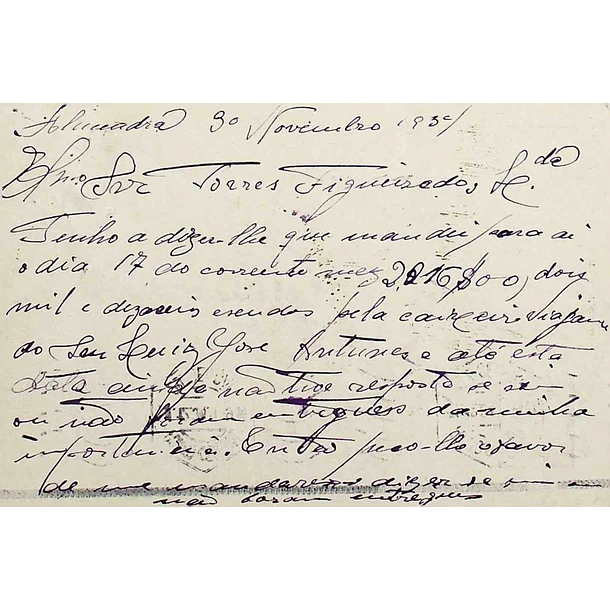 Almendra 30 Novembro 193
Snr Torres Figueiredo, L.da
Tenho a dizer-lhe que mandei para ai
o dia 17 do corrente mez 2,016$00, dois
mil e dezaseis escudos pela
do Snr Luiz José Antunes e até esta
data ainda não tive resposta se sim
ou não foram entregues da minha
importancia. Então peço-lhe o favor
de me mandarem dizer se sim
não foram entregues